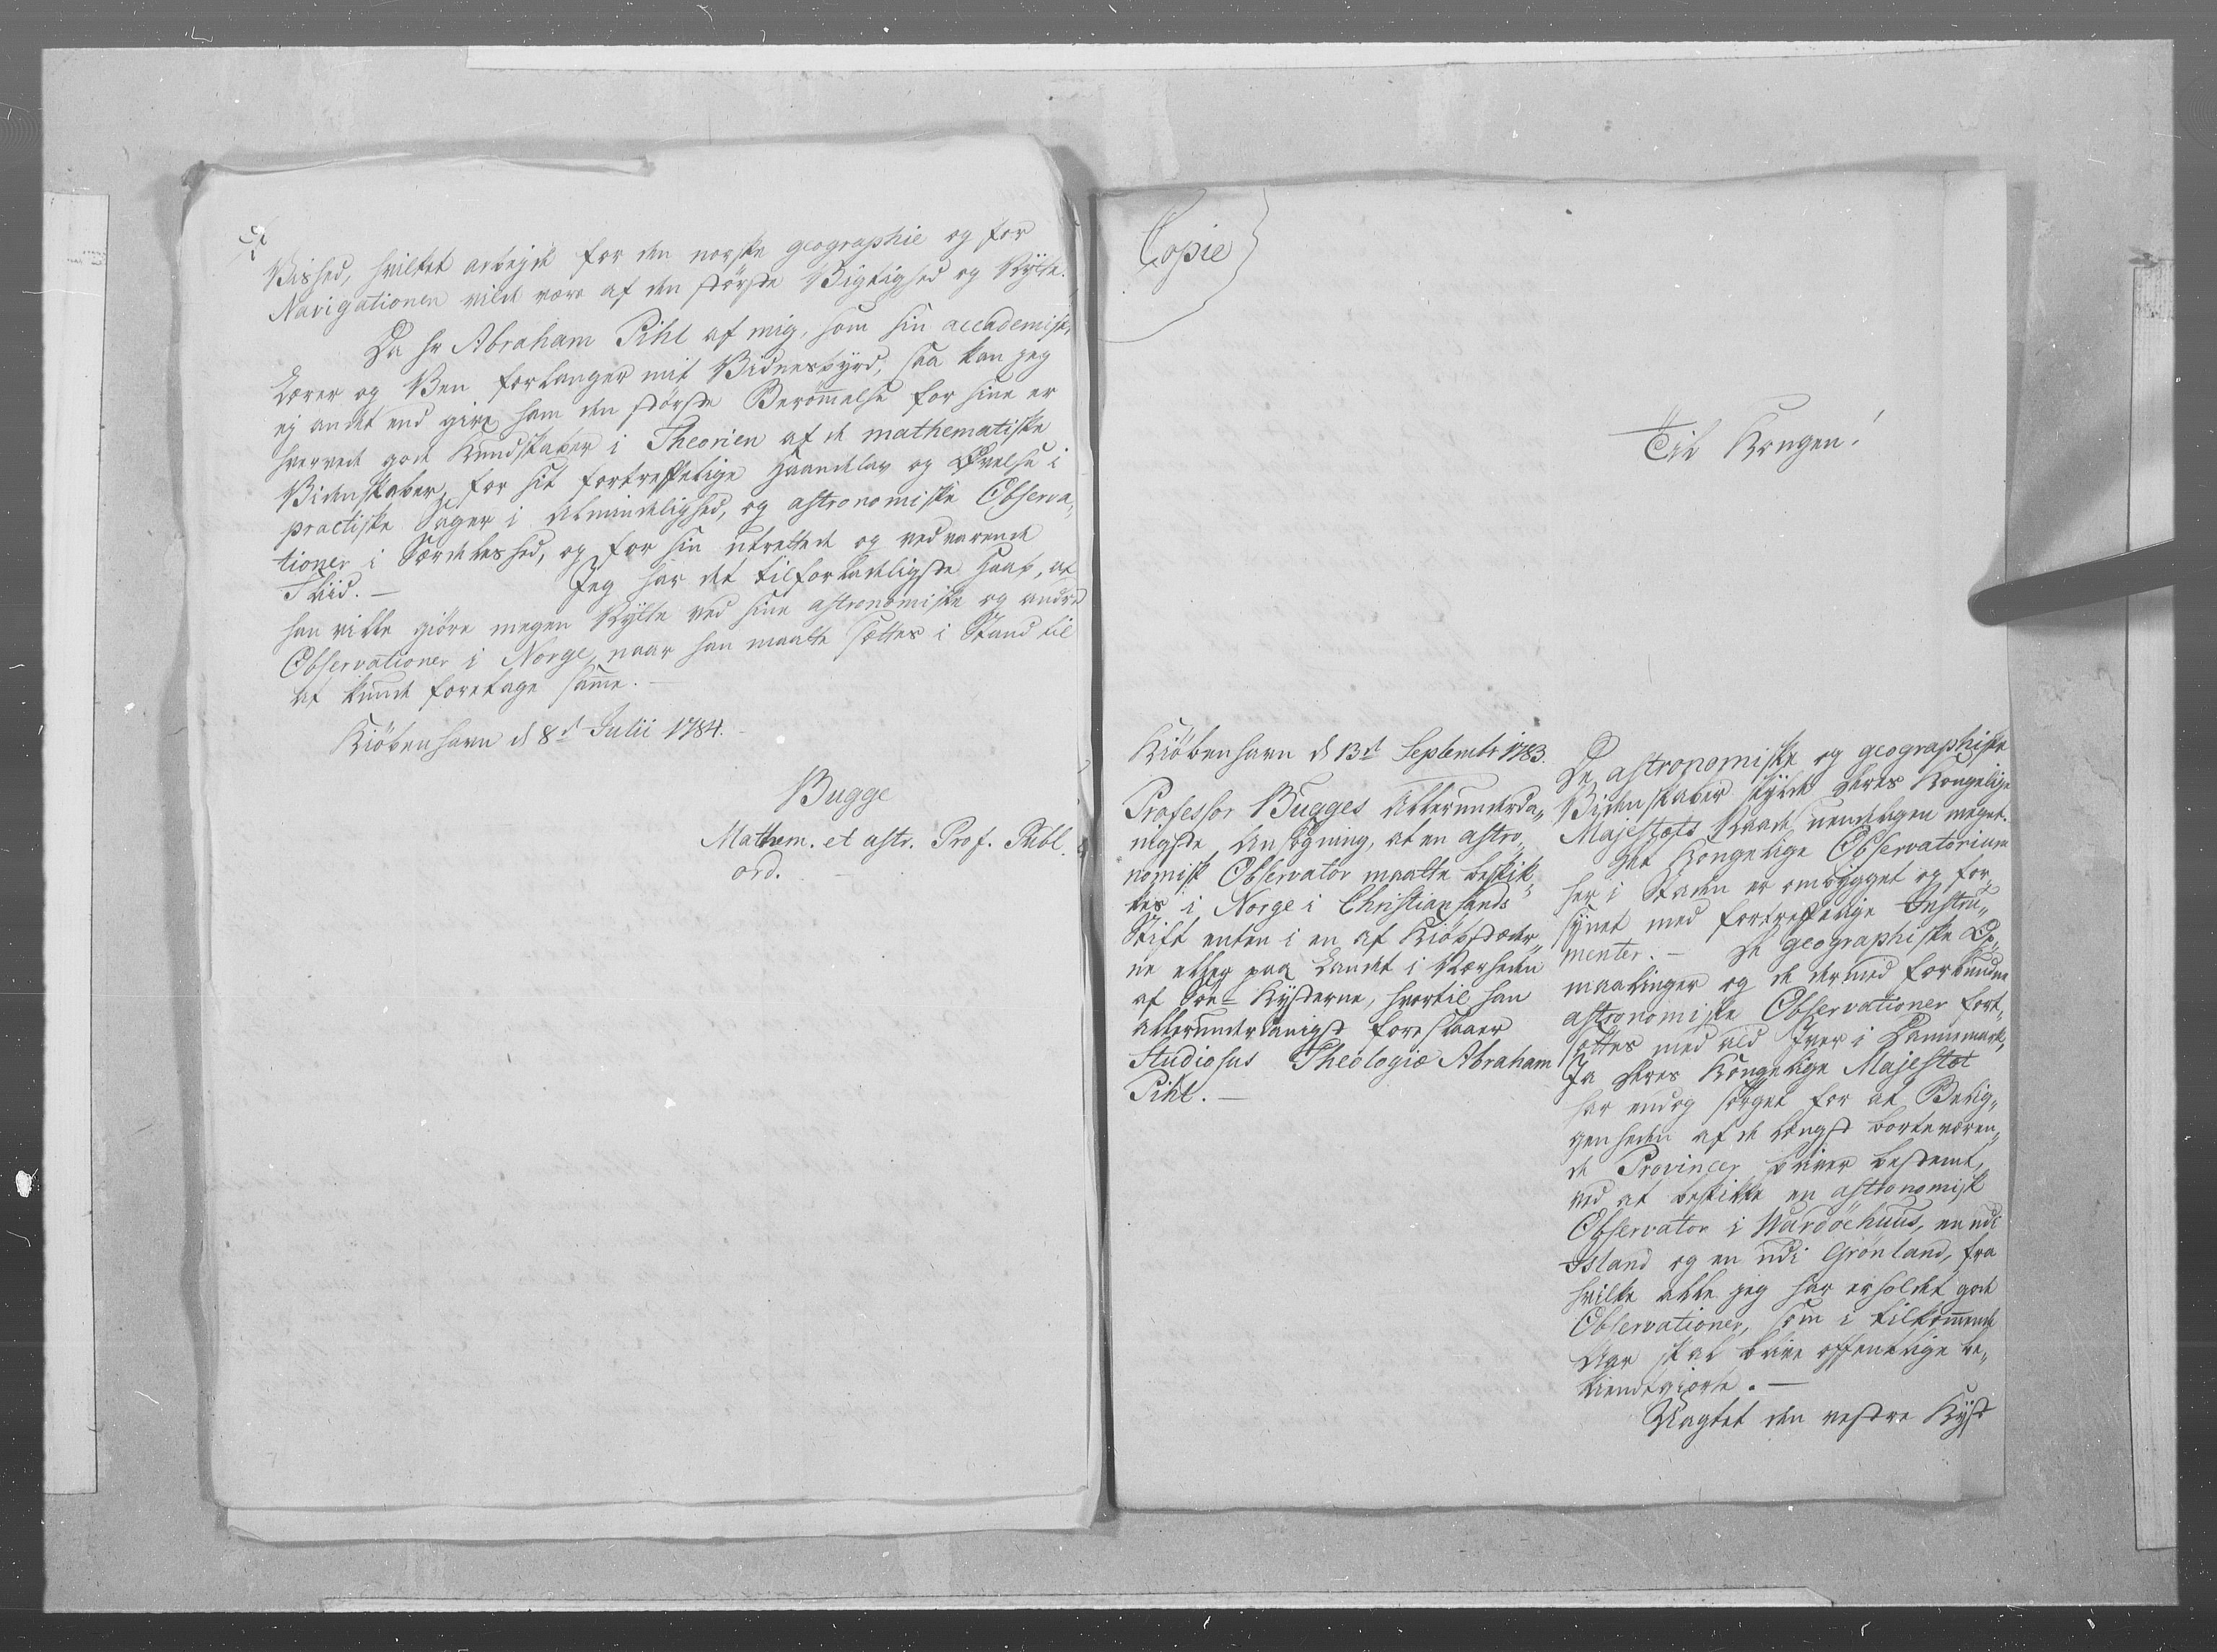 Vished, hvilket arbejde for den norske geographie og for
Navigationen vilde være af den störste Vigtighed og Nytte.
Da hr Abraham Pihl af mig, som sin accademiske
Lærer og Ven forlanger mit Vidnesbyrd, saa kan jeg
ej andet end give ham den störste Berömmelse for sine er
hvervede gode Kundskaber i Theorien af de mathematiske
Videnskaber, for sit fortreffelige Haandelav og Övelse i
practiske Sager i Almindelighed, og astronomiske Observa„
tioner i Særdeleshed, og for sin utrettede og vedvarende
Fliid. — Jeg har det tilforladeligste Haab, at
han ville giöre megen Nytte ved sine astronomiske og andre
Observationer i Norge, naar han maatte sættes i Stand til
at kunde foretage samme. —
Kiöbenhavn d 8d Julii 1784.
Bugge
Mathem. et astr. Prof. Publ.
ord. —
Copie
Til Kongen!
Kiöbenhavn d 13d Septembr 1783.
Professor Bugges allerunderda„
nigste Ansögning, at en astro„
nomisk Observator maatte beskik„
kes i Norge i Christiansands
Stift enten i en af Kiöbstæder„
ne eller paa Landet i Nærheden
af Söe-Kysterne, hvortil han
allerunderdanigst foreslaaer
Studiosus Theologiæ Abraham
Pihl. —
De astronomiske og geographiske
Videnskaber skylde Deres Kongelige
Majestæts Naade uendeligen meget.
Det Kongelige Observatorium
her i Staden er ombygget og for„
synet med fortreffelige Instru„
menter. — De geographiske Op„
maalinger og de dermed forbundne
astronomiske Observationer fort„
sættes med ald Iver i Dannemark,
Ja Deres Kongelige Majestæt
har endog sörget for at Belig„
genheden af de længst borteværen„
de Provincer bliver bestemt,
ved at beskikke en astronomisk
Observator i Wardöehuus, en udi
Island og en udi Grönland, fra
hvilke alle jeg har erholdet gode
Observationer, som i tilkommende
Aar skal blive offentlige be„
kiendtgiorte. —
Uagtet den vestre Kyst